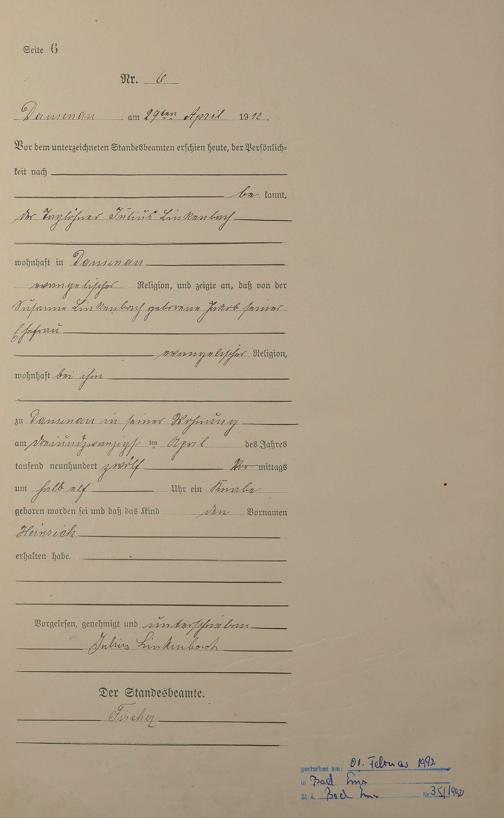 Seite 6
Nr. 6
Dausenau am 29ten April 1912.
Vor dem unterzeichneten Standesbeamten erschien heute, der Persönlich-
keit nach
be kannt,
der Taglöhner Julius Linkenbach
wohnhaft in Dausenau
evangelischer Religion, und zeigte an, daß von der
Susanne Linkenbach geborene Jakob seiner
Ehefrau
evangelischer Religion,
wohnhaft bei ihm
zu Dausenau in seiner Wohnung
am dreiundzwanzigsten April des Jahres
tausend neunhundert zwölf Vor mittags
um halb elf Uhr ein Knabe
geboren worden sei und daß das Kind den Vornamen
Heinrich
erhalten habe.
Vorgelesen, genehmigt und unterschrieben
Julius Linkenbach
Der Standesbeamte.
Fischer
gestorben am: 01. Februar 1992
in Bad Ems
St. A. Bad Ems Nr. 35/1992